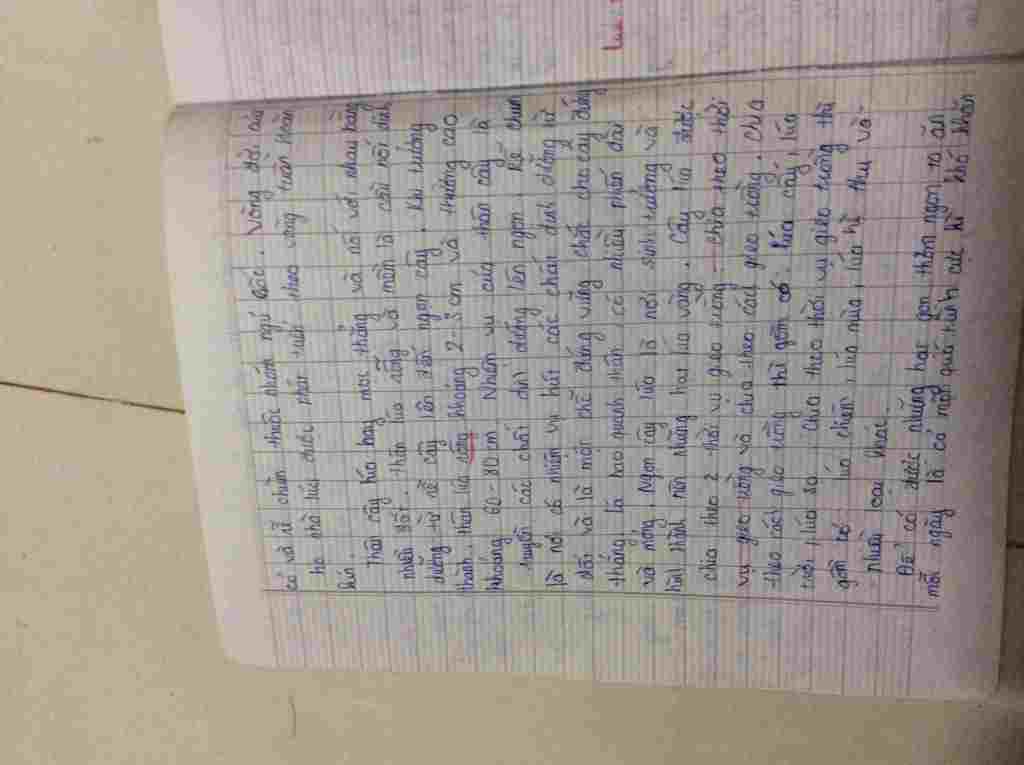 cỏ và rễ chùm thuộc nhánh ngũ cốc. Vòng đời của
họ nhà lúc được phát triển theo vòng tuần hoàn
kín.
Thân cây lúa hay mọc thẳng và nối với nhau bằng
nhiều đốt. thân lúa rỗng và mềm là cầu nối dinh
dưỡng từ rễ cây lên đến ngọn cây. Khi trưởng
thành, thân lúa rỗng khoảng 2-3 cm và thường cao
khoảng 60-80cm. Nhiệm vụ của thân cây là
truyền các chất dinh dưỡng lên ngọn. Rễ chùm
là nơi có nhiệm vụ hút các chất dinh dưỡng từ
đất và là món chế cứng vững chắc cho cây đứng
thẳng. lá bao quanh thân, có nhiều phiến dài
và mỏng. Ngọn cây lúa là nơi sinh trưởng và
hình thành nên những hạt lúa vàng. Cây lúa được
chia theo 2 thời vụ gieo trồng: chia theo thời
vụ gieo trồng và chia theo cách gieo trồng. Chia
theo cách gieo trồng thì gồm có: lúa cấy, lúa
trời, lúa sạ. Chia theo thời vụ gieo trồng thì
gồm có: lúa chiêm, lúa mùa, lúa hè thu và
nhiều loại khác.
Để có được những hạt gạo thơm ngon ra ăn
mỗi ngày là cả một quá trình cực kì khó khăn